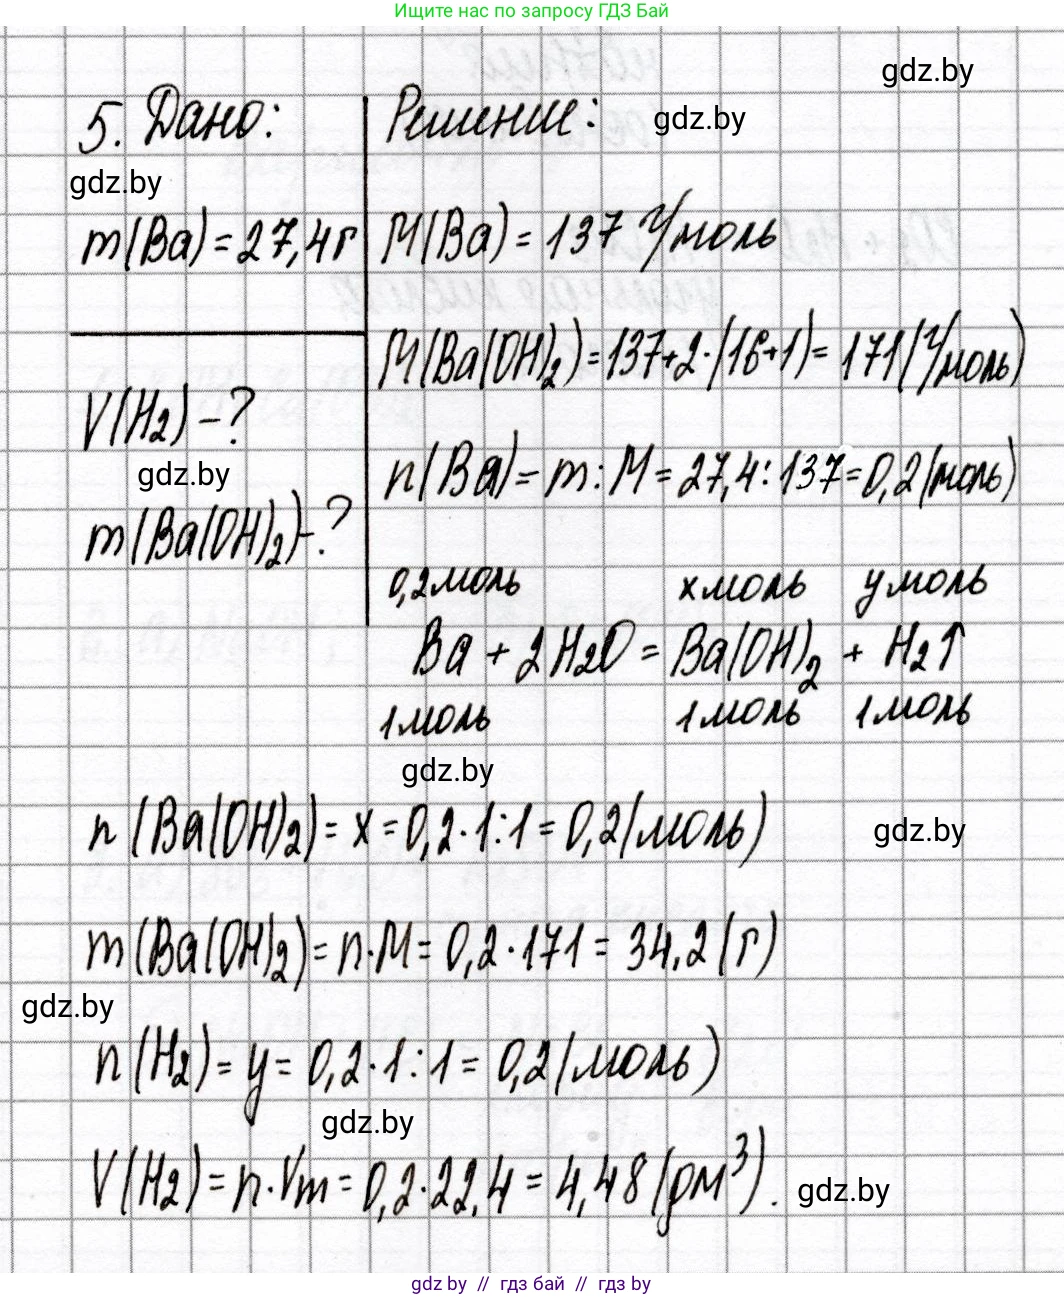 Ищите нас по запросу ГДЗ Бай
gdz.by
5. Дано:
Решение:
gdz.by
gdz.by
m(Ba) = 27,4 г
M(Ba) = 137 г/моль
M(Ba(OH)2) = 137+2·(16+1) = 171 (г/моль)
V(H2) - ?
gdz.by
n(Ba) = m : M = 27,4 : 137 = 0,2 (моль)
m(Ba(OH)2) - ?
0,2 моль x моль y моль
Ba + 2H2O = Ba(OH)2 + H2↑
1 моль 1 моль 1 моль
gdz.by
n(Ba(OH)2) = x = 0,2·1:1 = 0,2 (моль)
gdz.by
m(Ba(OH)2) = n·M = 0,2·171 = 34,2 (г)
gdz.by
n(H2) = y = 0,2·1:1 = 0,2 (моль)
gdz.by
V(H2) = n·Vm = 0,2·22,4 = 4,48 (дм³).
gdz.by
gdz by // гдз бай // gdz by